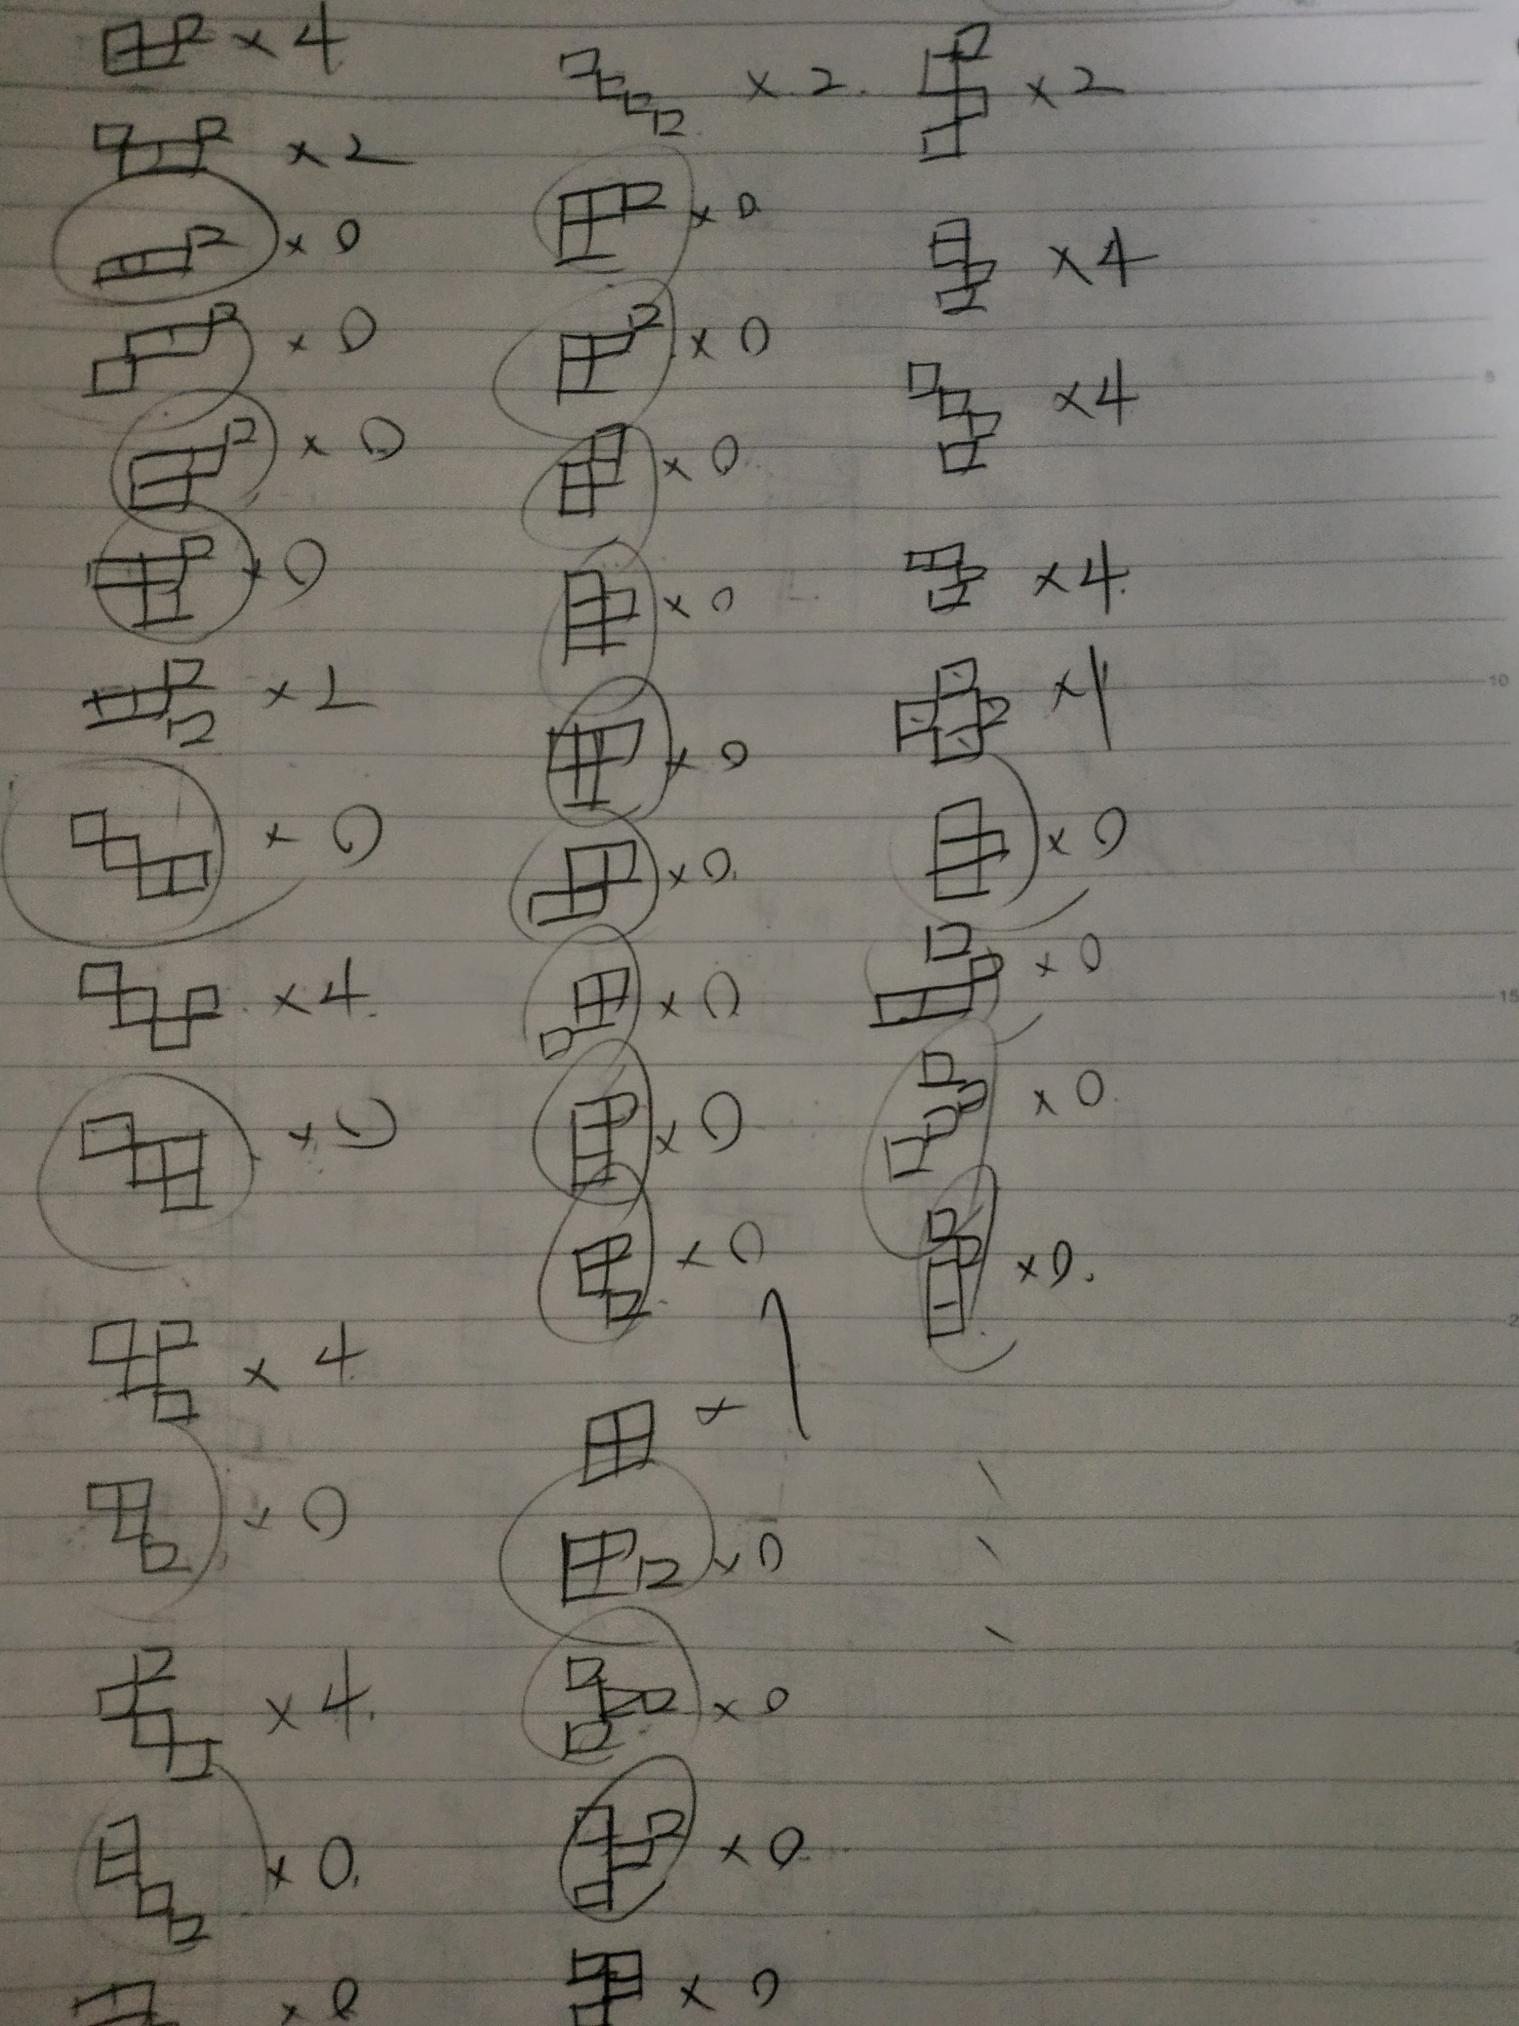 × 4
× 2
× 0
× 0
× 0
× 0
× 2
× 0
× 4
× 0
× 4
× 0
× 4.
× 0.
× 2.
× 0
× 0
× 0
× 0
× 0
× 0.
× 0
× 0
× 0
× 1
× 0
× 0
× 0
× 0
× 2
× 4
× 4
× 4.
× 1
× 0
× 0
× 0.
× 0.
5
10
15